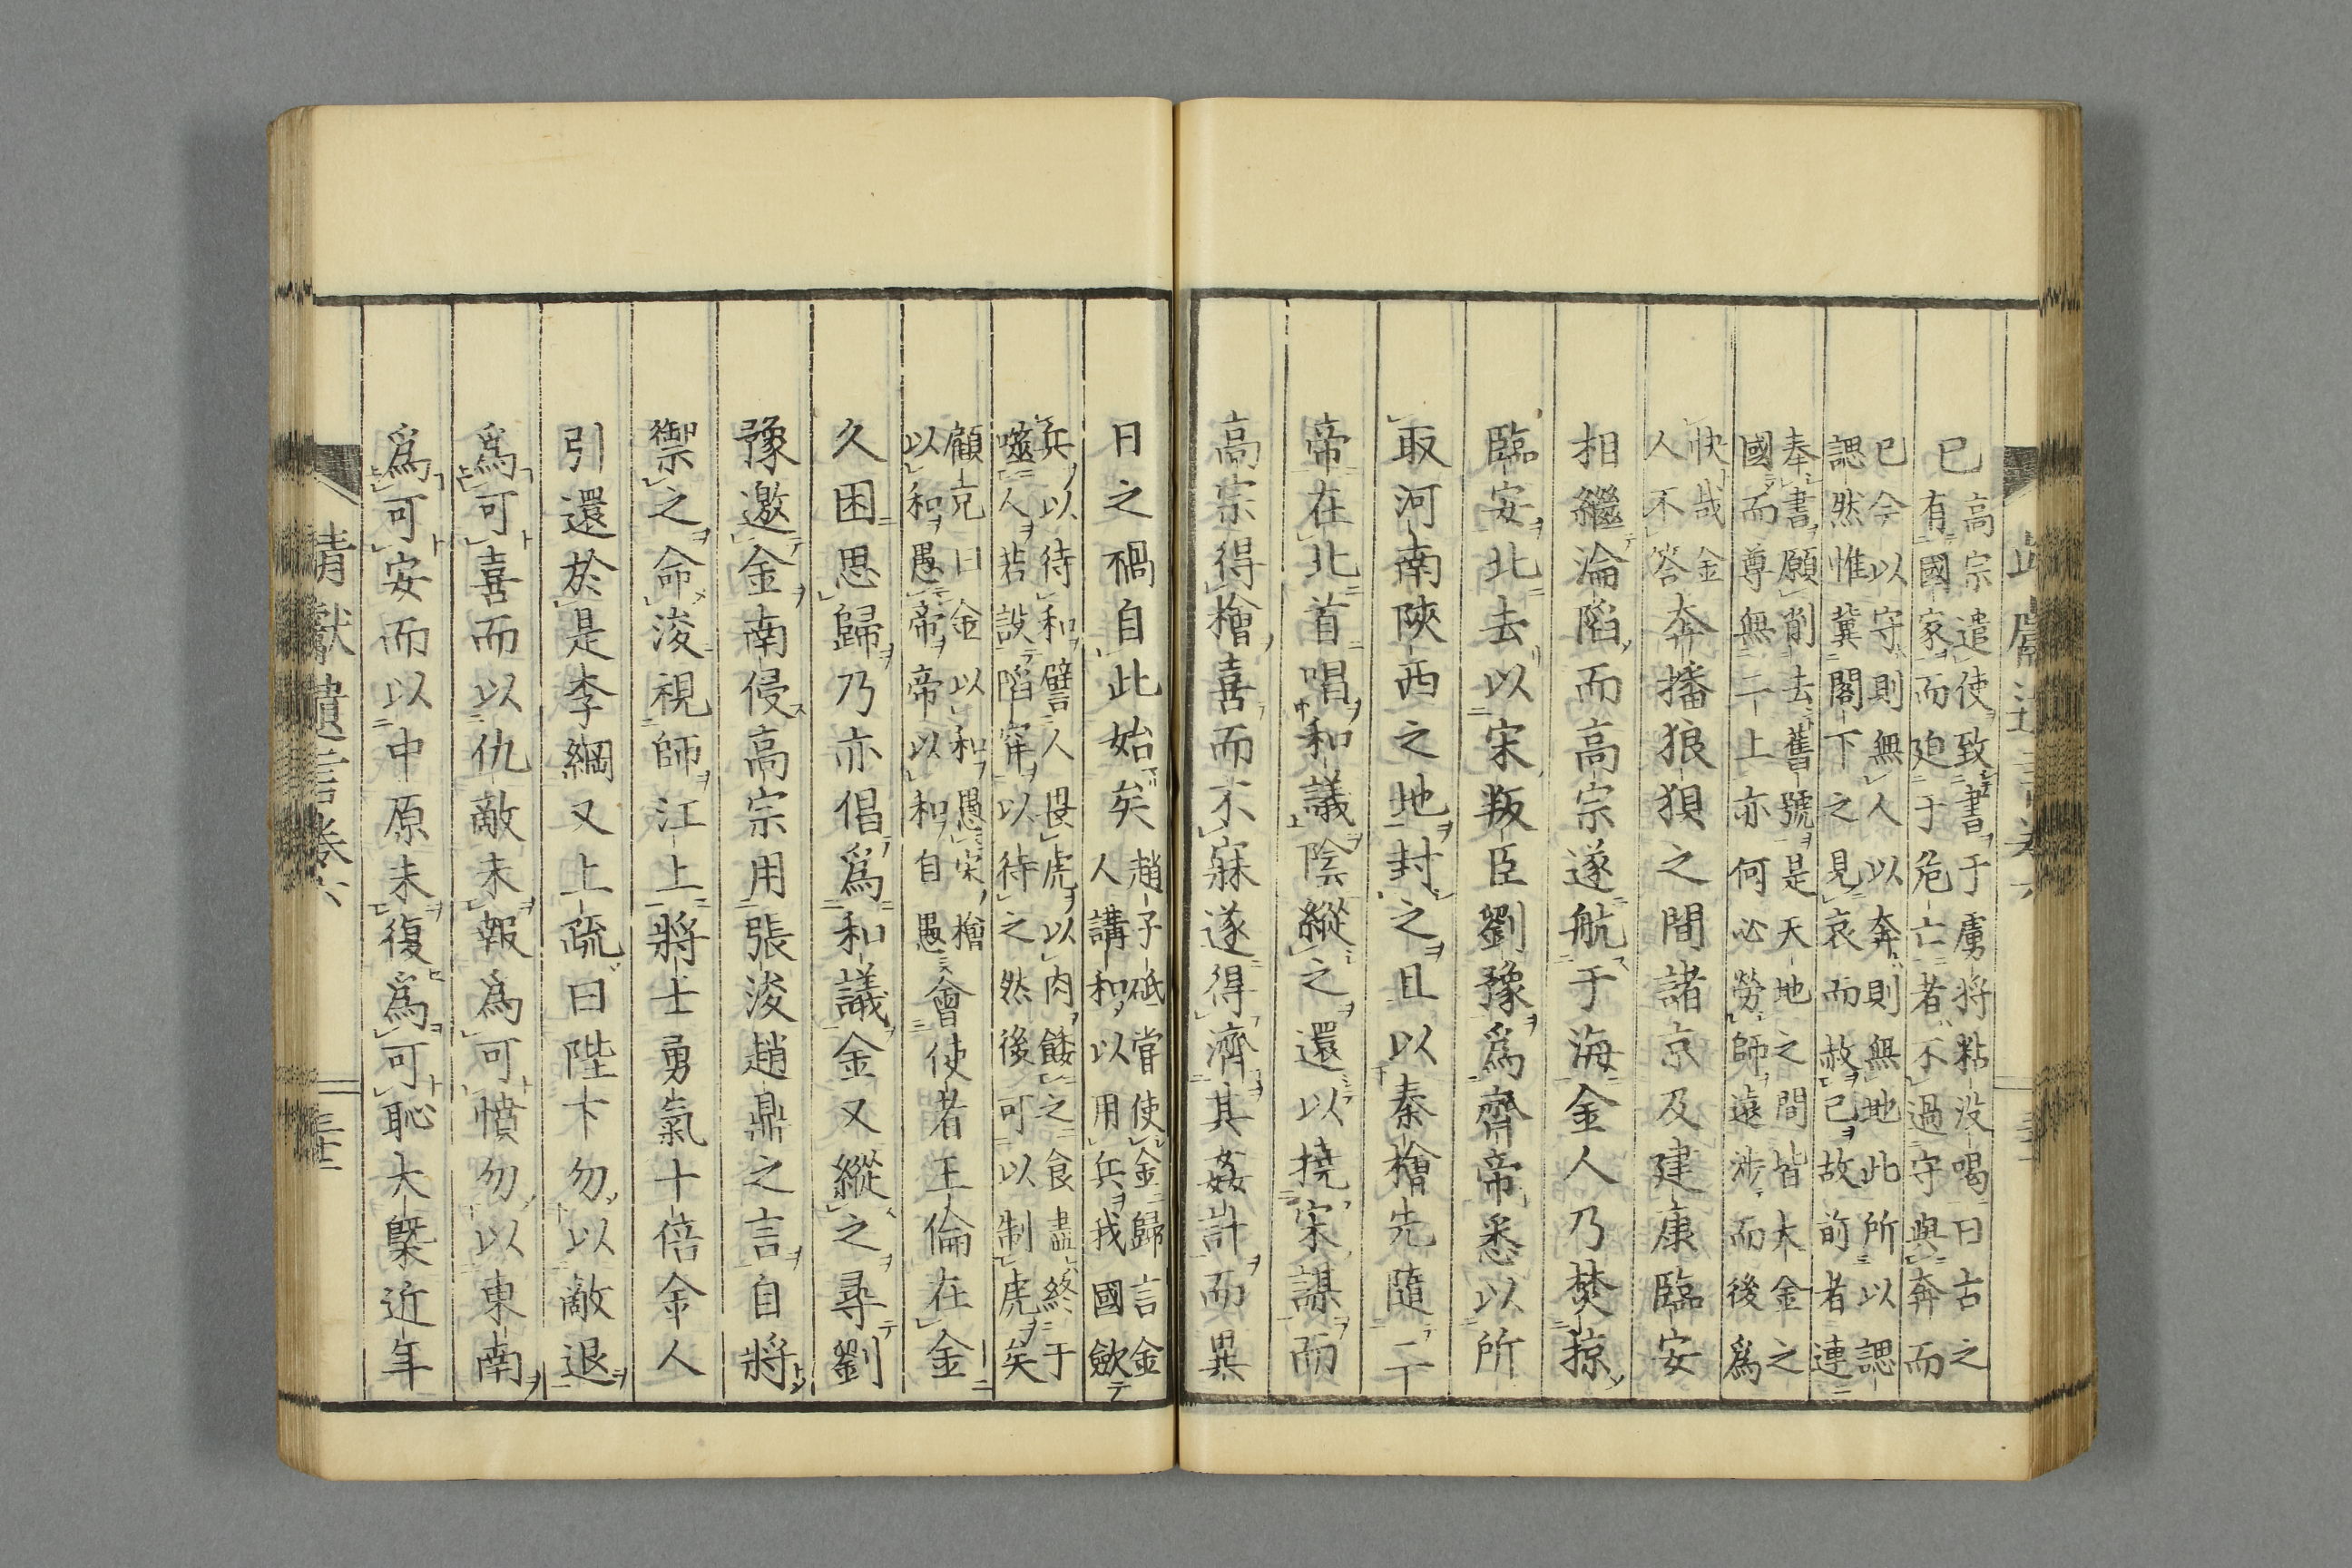 已高宗遣使致書于虜將粘没喝曰古之
有國家而廹于危亡者不過守與奔而
已今以守則無人以奔則無地此所以諰
諰然惟冀閣下之見哀而赦己故前者連
奉書願削去舊號是天地之間皆大金之
國而尊無二上亦何必勞師遠涉而後爲
快哉金
人不答奔播狼狽之間諸京及建康臨安
相繼淪陷而高宗遂航于海金人乃焚掠
臨安北去以宋叛臣劉豫爲齊帝悉以所
取河南陝西之地封之且以秦檜先隨二
帝在北首唱和議陰縱之還以撓宋謀而
高宗得檜喜而不寐遂得濟其姦計而異
日之禍自此始矣趙子砥嘗使金歸言金
人講和以用兵我國歛
兵以待和譬人畏虎以肉餧之食盡終于
噬人若設陷穽以待之然後可以制虎矣
顧兄曰金以和愚宋檜
以和愚帝帝以和自愚會使者王倫在金
久困思歸乃亦倡爲和議金又縱之尋劉
豫邀金南侵高宗用張浚趙鼎之言自將
禦之命浚視師江上將士勇氣十倍金人
引還於是李綱又上疏曰陛下勿以敵退
爲可喜而以仇敵未報爲可憤勿以東南
爲可安而以中原未復爲可恥大槩近年
靖獻遺言卷六 三十二